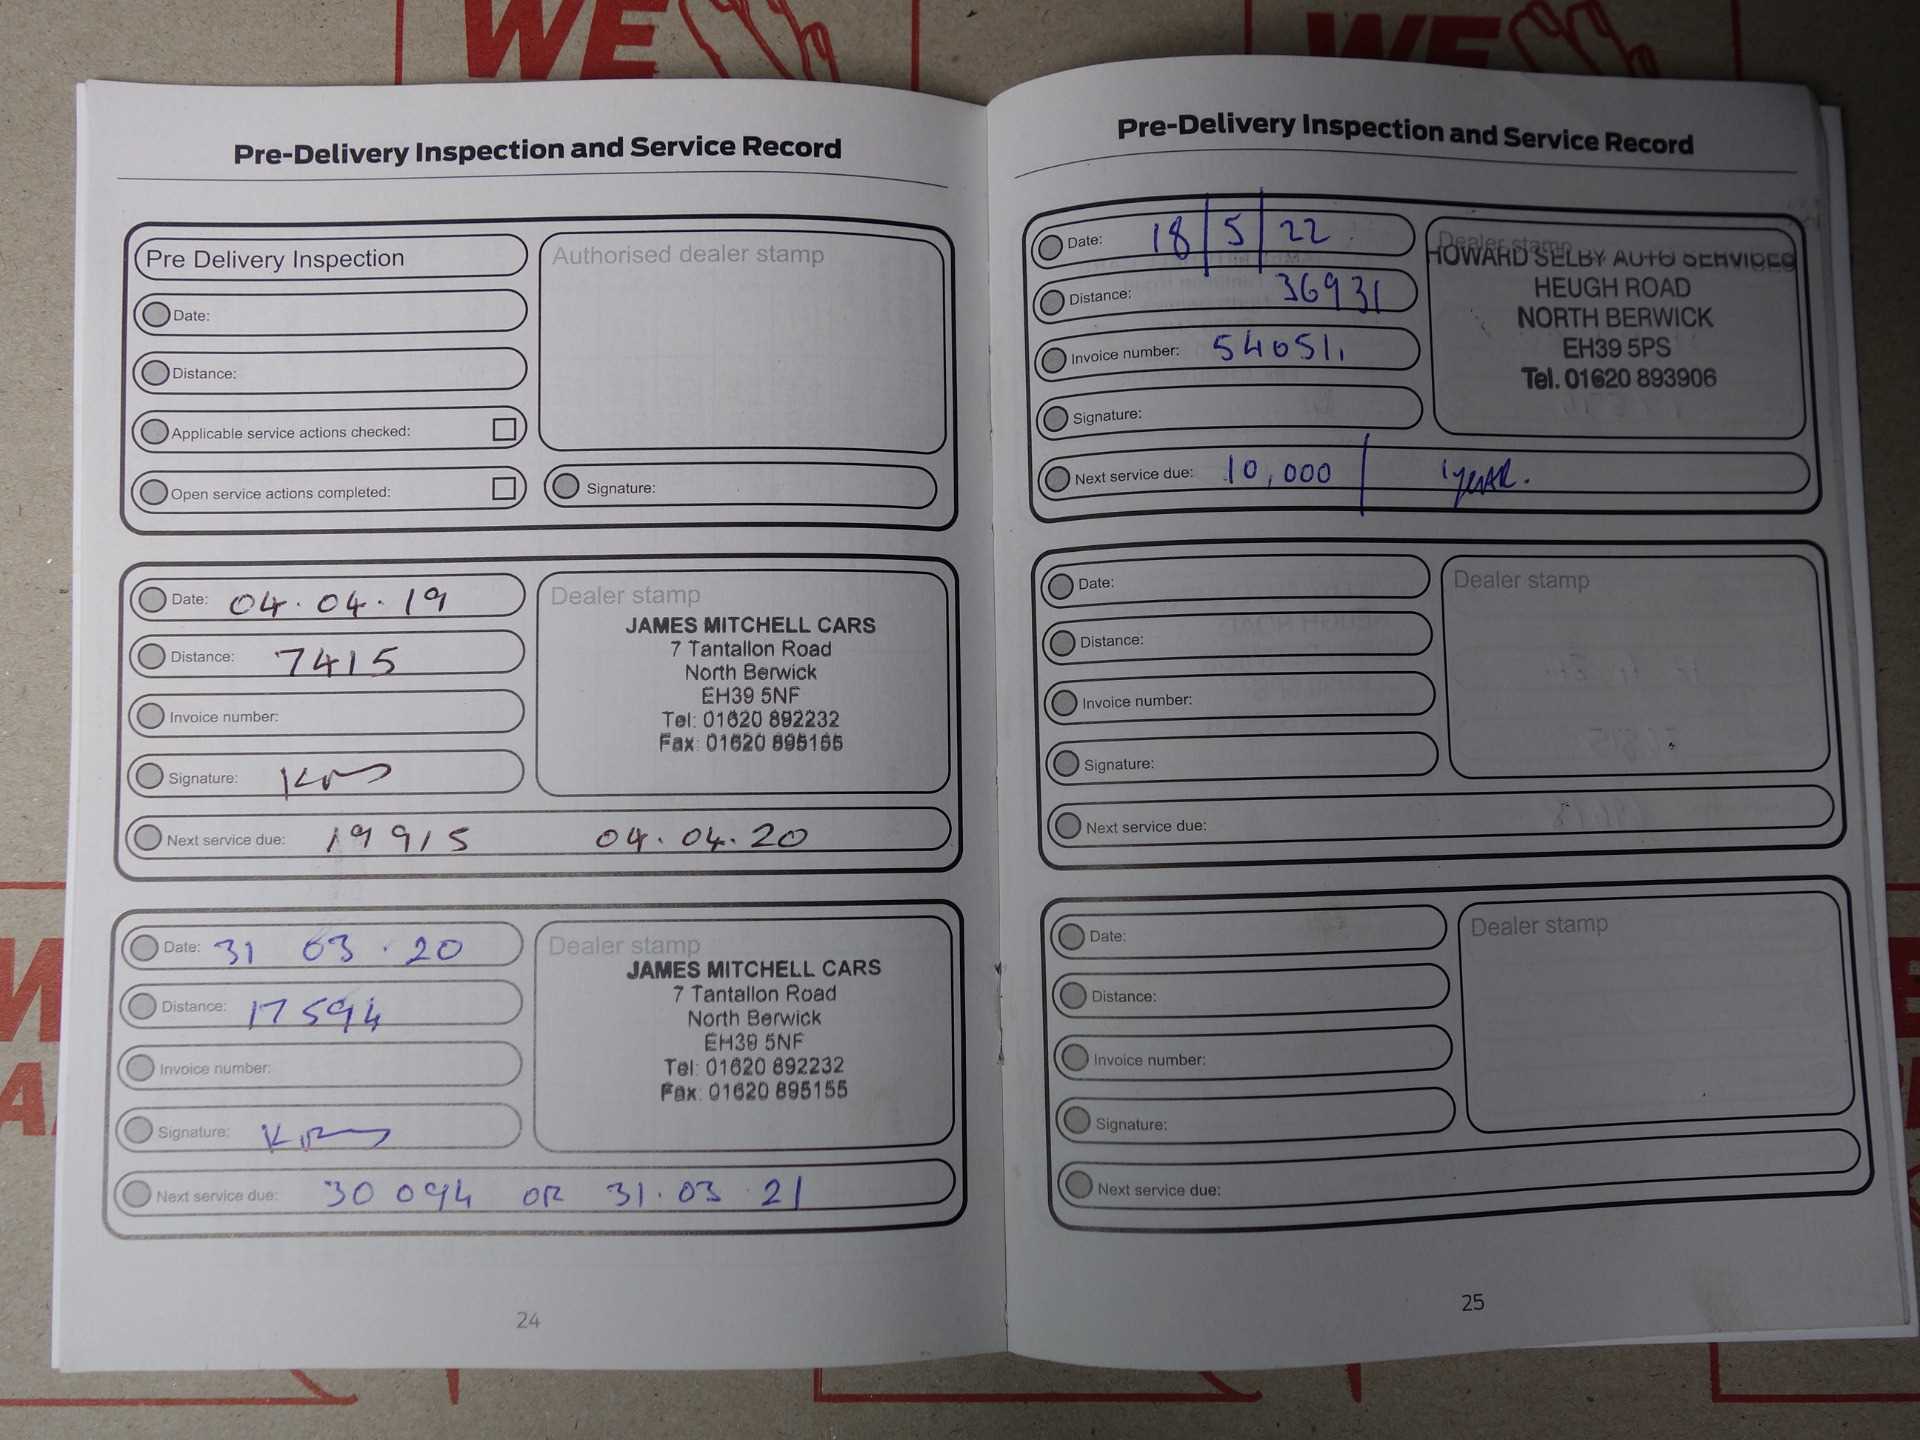 WE
WE
Pre-Delivery Inspection and Service Record
Pre Delivery Inspection
Date:
Distance:
Applicable service actions checked:
Open service actions completed:
Authorised dealer stamp
Signature:
Date: 04.04.19
Distance: 7415
Invoice number:
Signature:
Dealer stamp
JAMES MITCHELL CARS
7 Tantallon Road
North Berwick
EH39 5NF
Tel: 01620 892232
Fax: 01620 895155
Next service due: 19915 04.04.20
Date: 31 03.20
Distance: 17594
Invoice number:
Signature:
Dealer stamp
JAMES MITCHELL CARS
7 Tantallon Road
North Berwick
EH39 5NF
Tel: 01620 892232
Fax: 01620 895155
Next service due: 30094 OR 31.03.21
24
Pre-Delivery Inspection and Service Record
Date: 18/5/22
Distance: 36931
Invoice number: 54051.
Signature:
Dealer stamp
HOWARD SELBY AUTO SERVICES
HEUGH ROAD
NORTH BERWICK
EH39 5PS
Tel. 01620 893906
Next service due: 10,000 / 1 YEAR.
Date:
Distance:
Invoice number:
Signature:
Dealer stamp
Next service due:
Date:
Distance:
Invoice number:
Signature:
Dealer stamp
Next service due:
25